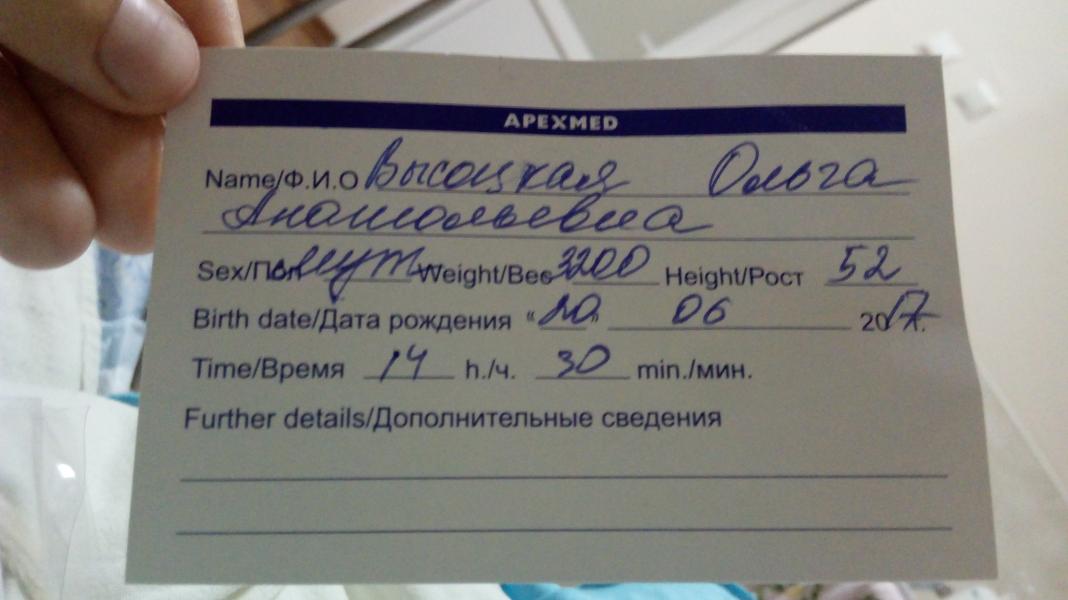 APEXMED
Name/Ф.И.О Высоцкая Ольга
Анатольевна
Sex/Пол муж Weight/Вес 3200 Height/Рост 52
Birth date/Дата рождения "20" 06 2017г.
Time/Время 14 h./ч. 30 min./мин.
Further details/Дополнительные сведения